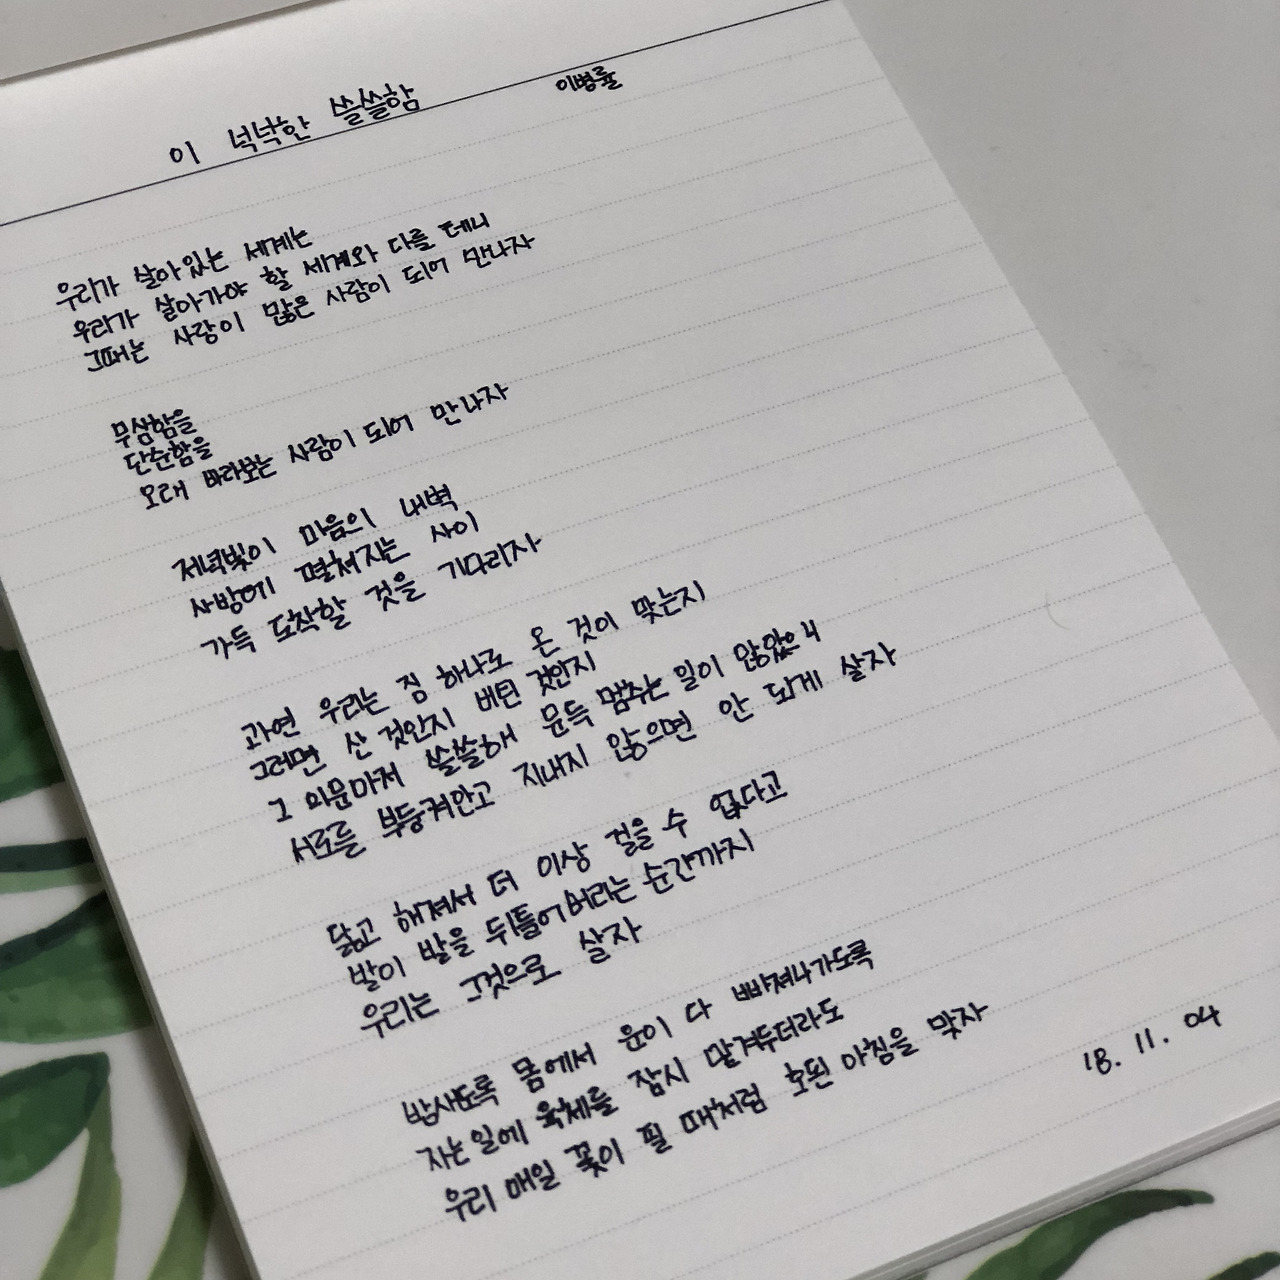 이 넉넉한 쓸쓸함
이병률
우리가 살아있는 세계는
우리가 살아가야 할 세계와 다를 테니
그때는 사랑이 많은 사람이 되어 만나자
무심함을
단순함을
오래 바라보는 사람이 되어 만나자
저녁빛이 마음의 내벽
사방에 펼쳐지는 사이
가득 도착할 것을 기다리자
과연 우리는 점 하나로 온 것이 맞는지
그러면 산 것인지 버틴 것인지
그 의문마저 쓸쓸해 문득 멈추는 일이 많았으니
서로를 부둥켜안고 지내지 않으면 안 되게 살자
닳고 해져서 더 이상 걸을 수 없다고
발이 발을 뒤틀어버리는 순간까지
우리는 그것으로 살자
밤새도록 몸에서 운이 다 빠져나가도록
자는 일에 육체를 잠시 맡겨두더라도
우리 매일 꽃이 필 때처럼 호된 아침을 맞자
'18. 11. 04